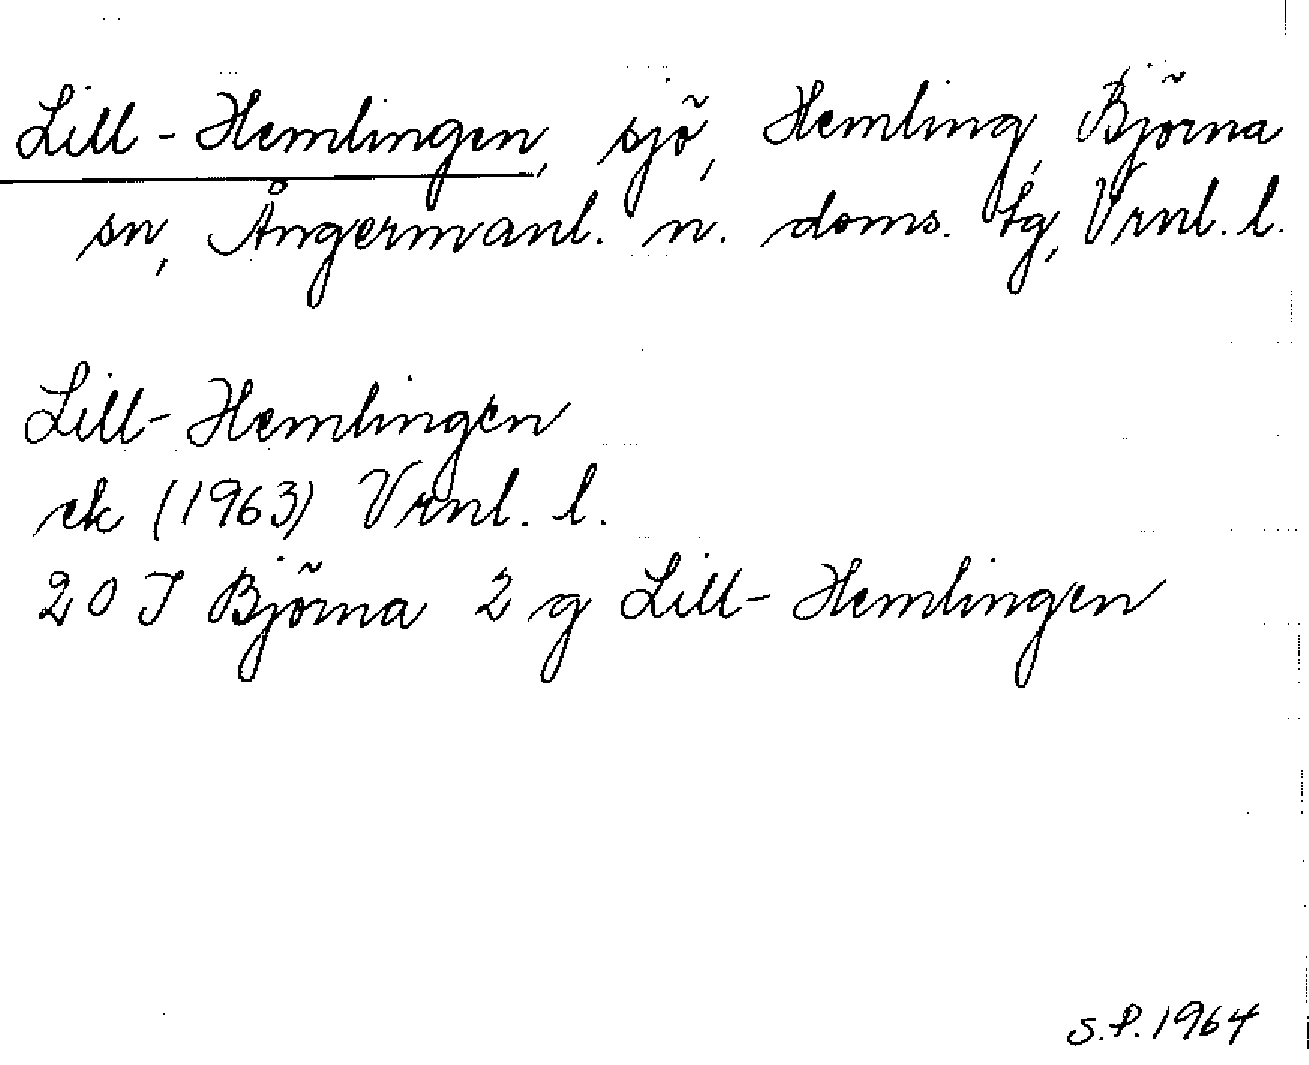 Lill-Hemlingen, sjö, Hemling, Björna
sn, Ångermanl. n. doms. tg, Vrnl. l.
Lill-Hemlingen
ek (1963) Vrnl. l.
20 I Björna 2 g Lill-Hemlingen
S.P. 1964